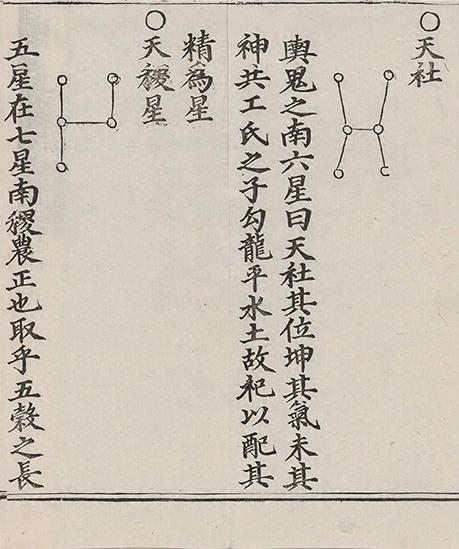 天社
輿鬼之南六星曰天社其位坤其氣未其
神共工氏之子勾龍平水土故祀以配其
精為星
天稷星
五星在七星南稷農正也取乎五穀之長